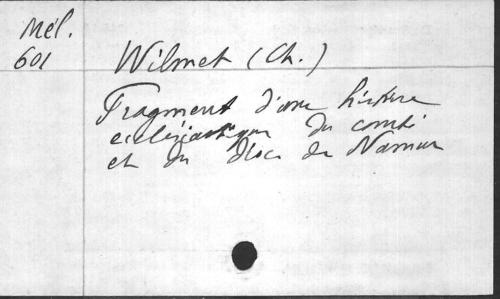 Mél.
601
Wilmet (Ch.)
Fragment d'une histoire
ecclésiastique du comté
et du dioc. de Namur